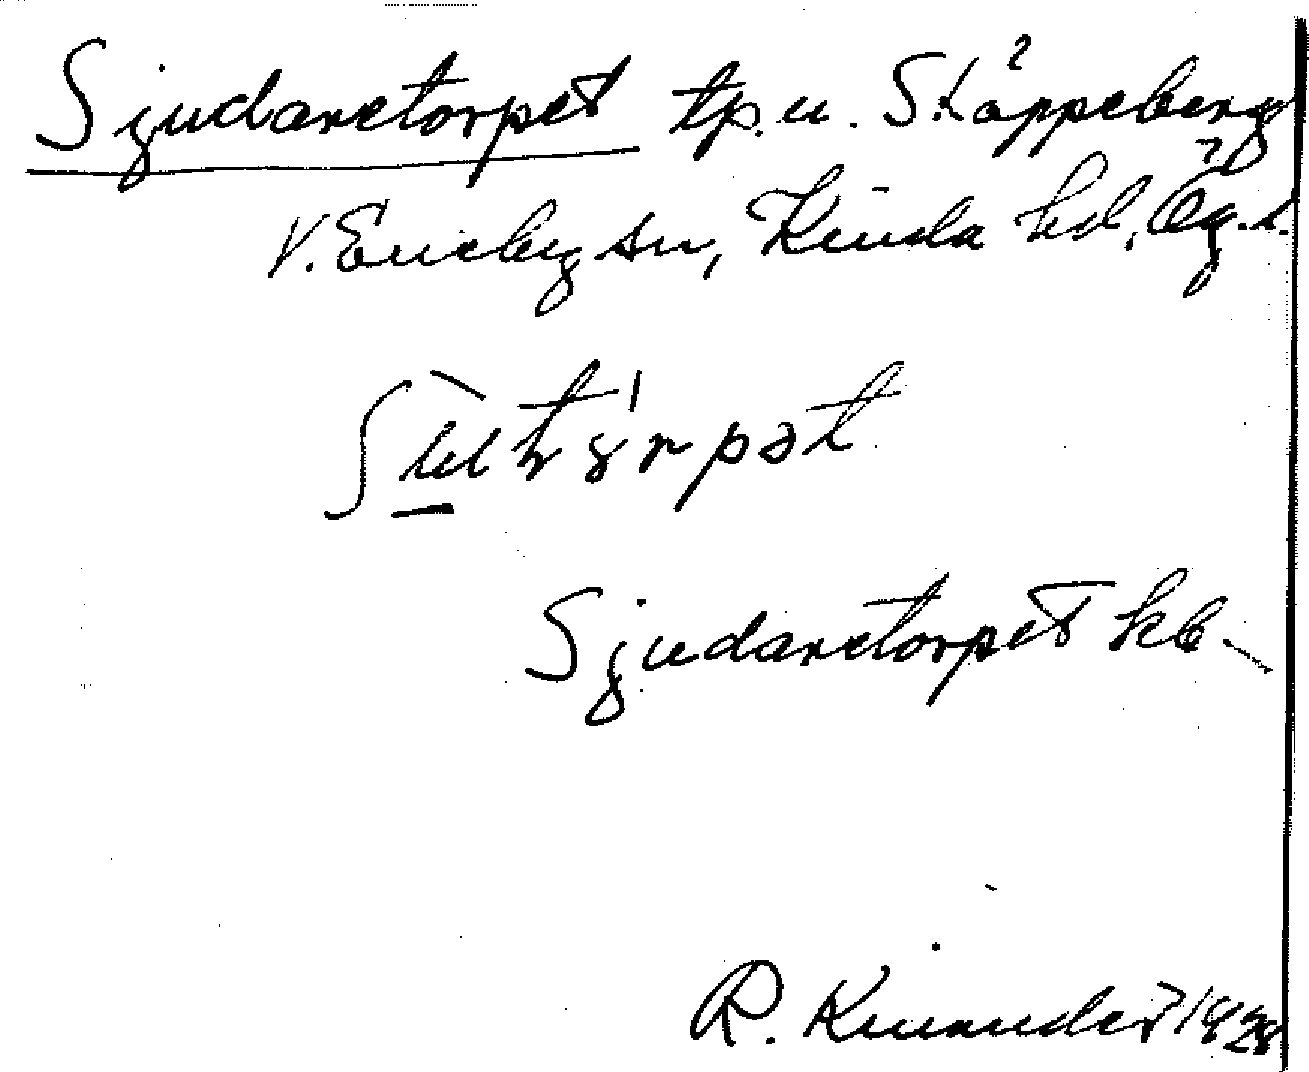 Sjudaretorpet tp. u. Skäppeberg
V. Eneby sn, Kinda hd, Ög. l.
Sjudaretorpet kb
R. Kinander 1928